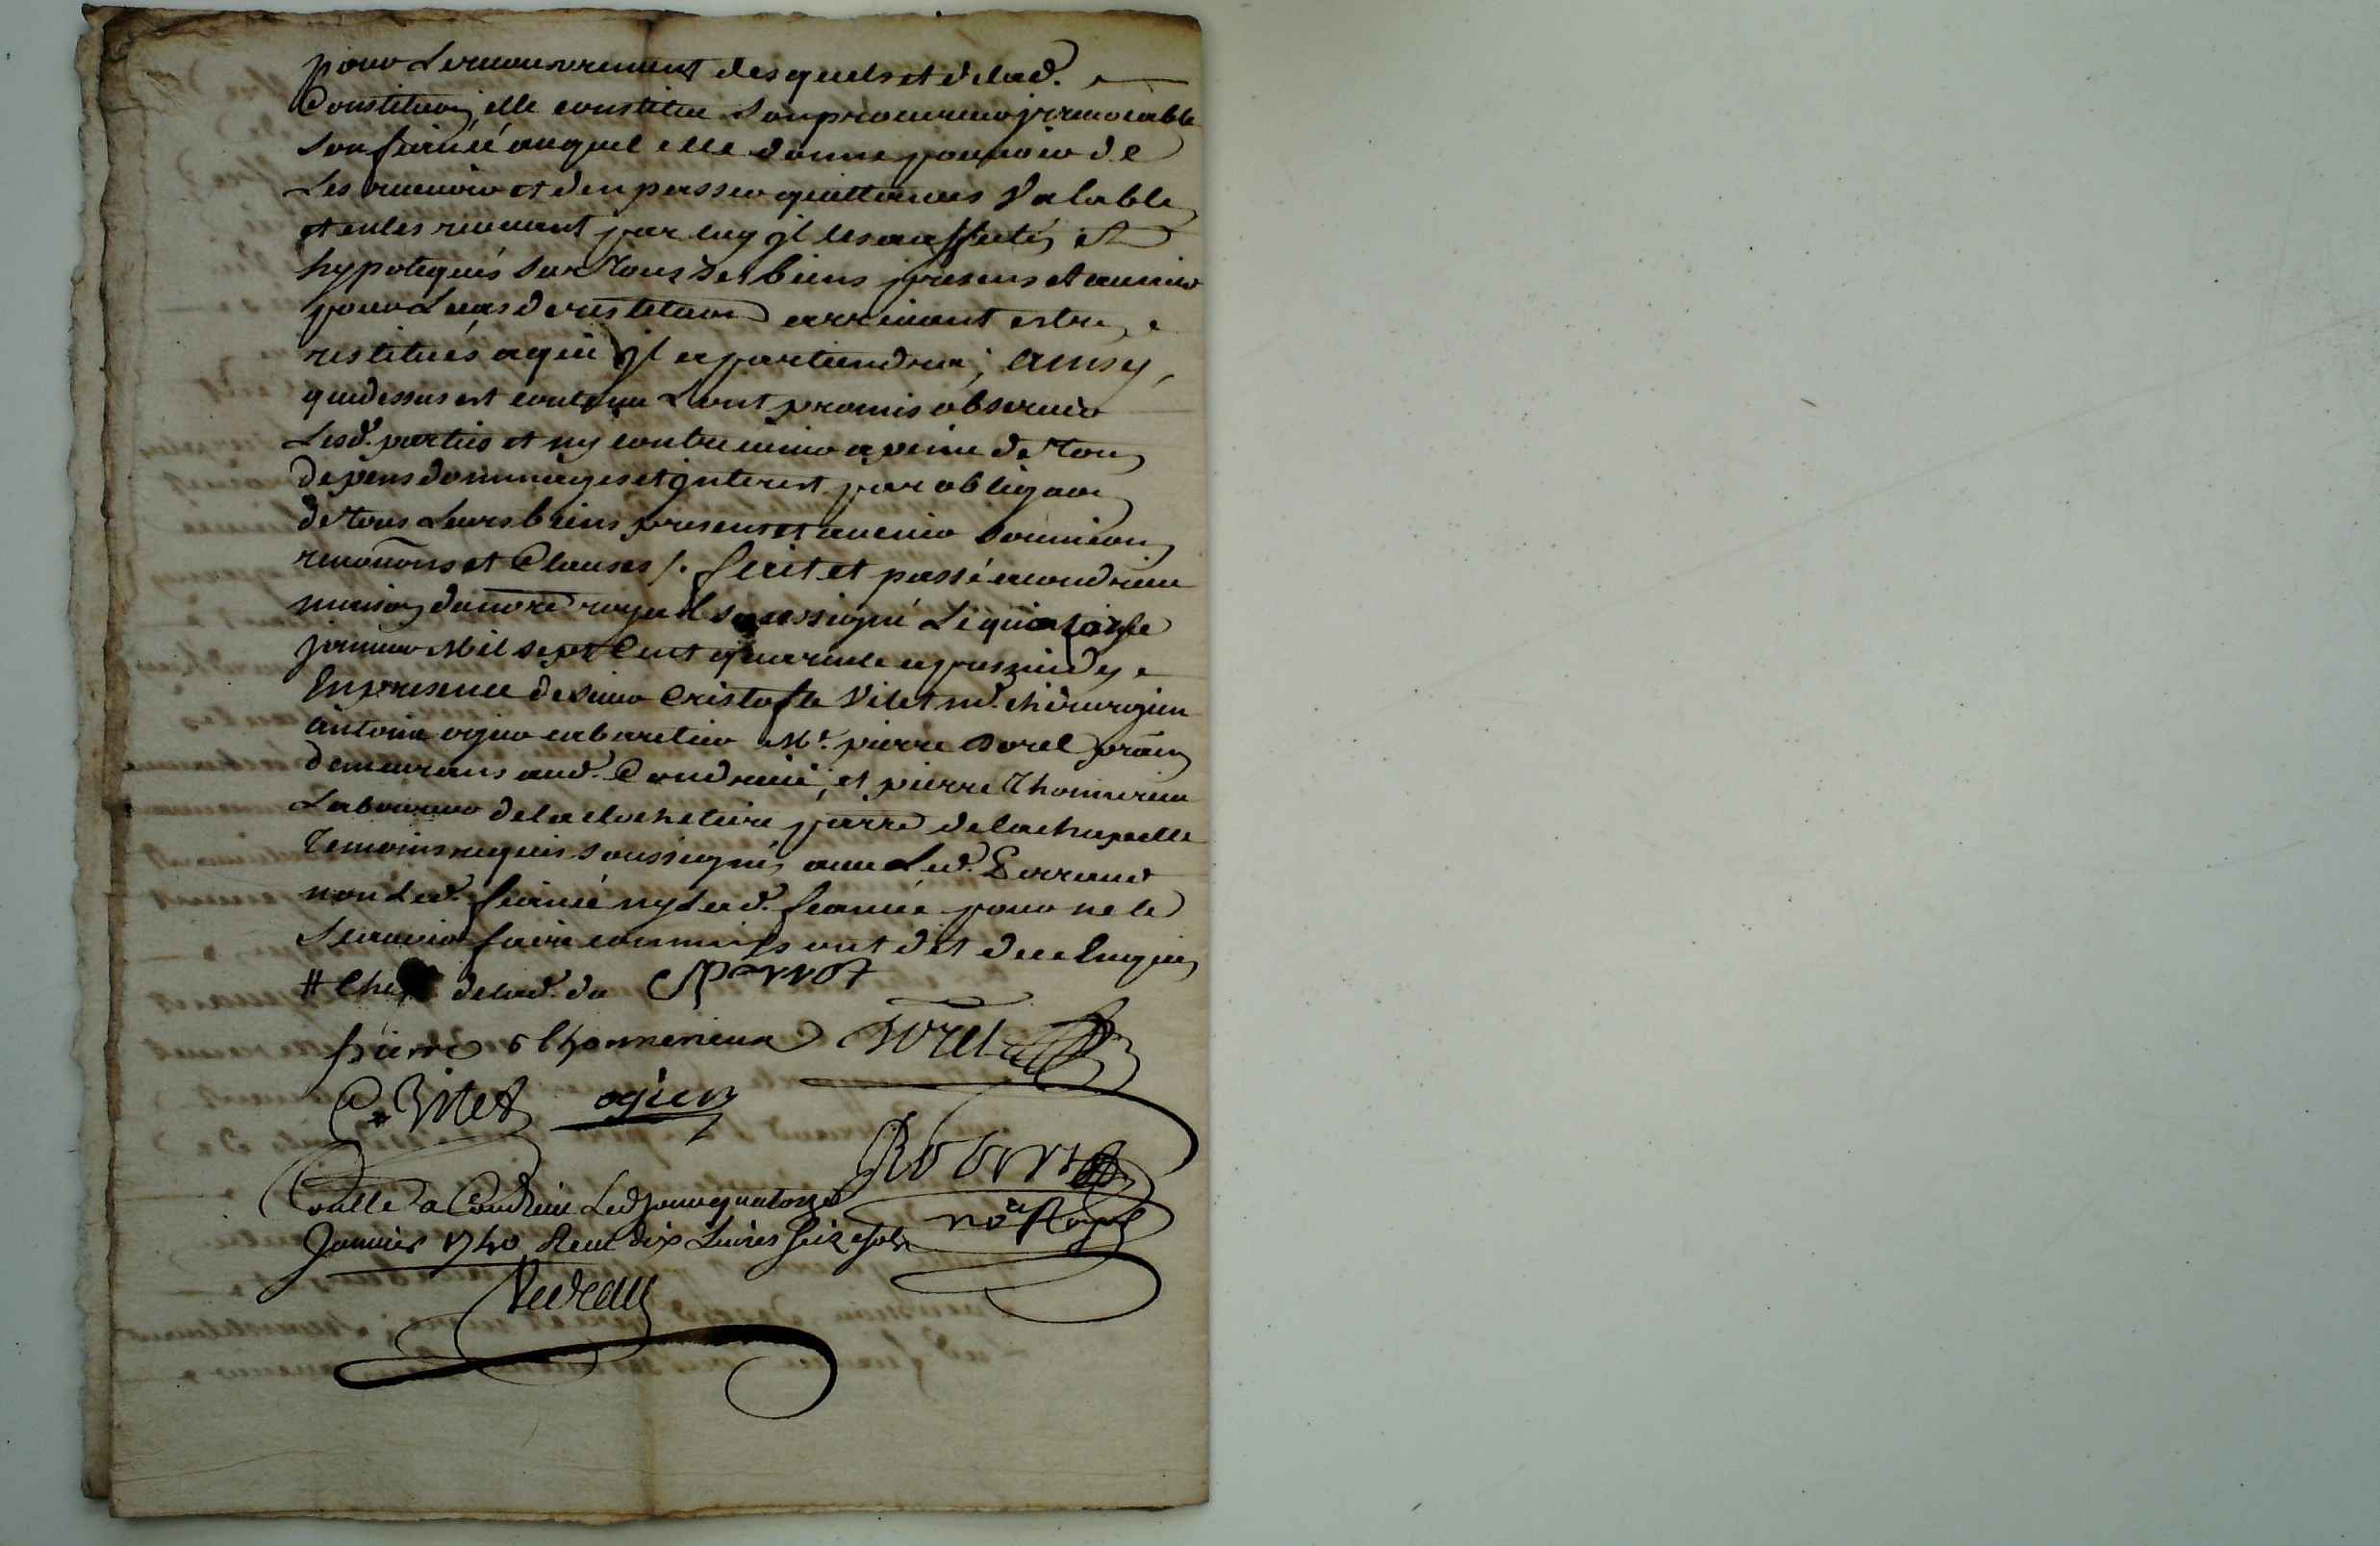 pour le recouvrement desquels et de lad.
Constituon, elle constitue son procureur jrrevocable
son fiancé auquel elle donne pouvoir de
les recevoir et den passer quittances valable
et en les recevant par luy jl les a affectés et
hypotequés sur tous ses biens presens et avenir
pour le cas de restitution arrivant estre
restitués a qui jl apartiendra; ainsy
que dessus est contenu l'ont promis observer
Lesd. parties et ny contrevenir a peine de tous
depens dommages et jnterest par obligaon
de tous leurs biens presens et avenir soumions
renonons et Clauses /. fait et passé a condrieu
maison du nore royal soussigné le quatorze
janvier Mil sept Cent quarente apres midy
En presence de sieur Cristofle Vitet md. chirurgien
antoine ogier cabaretier Mr. pierre dorel praen
demeurans aud. Condrieu, et pierre Thomerieu
Laboureur de la clochetiere parre de la chapelle
Temoins requis soussignés avec led. Parrant
non led. fiancé ny lad. fiancée pour ne le
sçavoir faire comme jls ont dit de ce Enquis
# delad. da
pierre thommerieux dorel
C. Vitet ogier
Collé a Condrieu Led jour quatorze
Janvier 1740 Receu dix Livres seize sols
no.re Royal